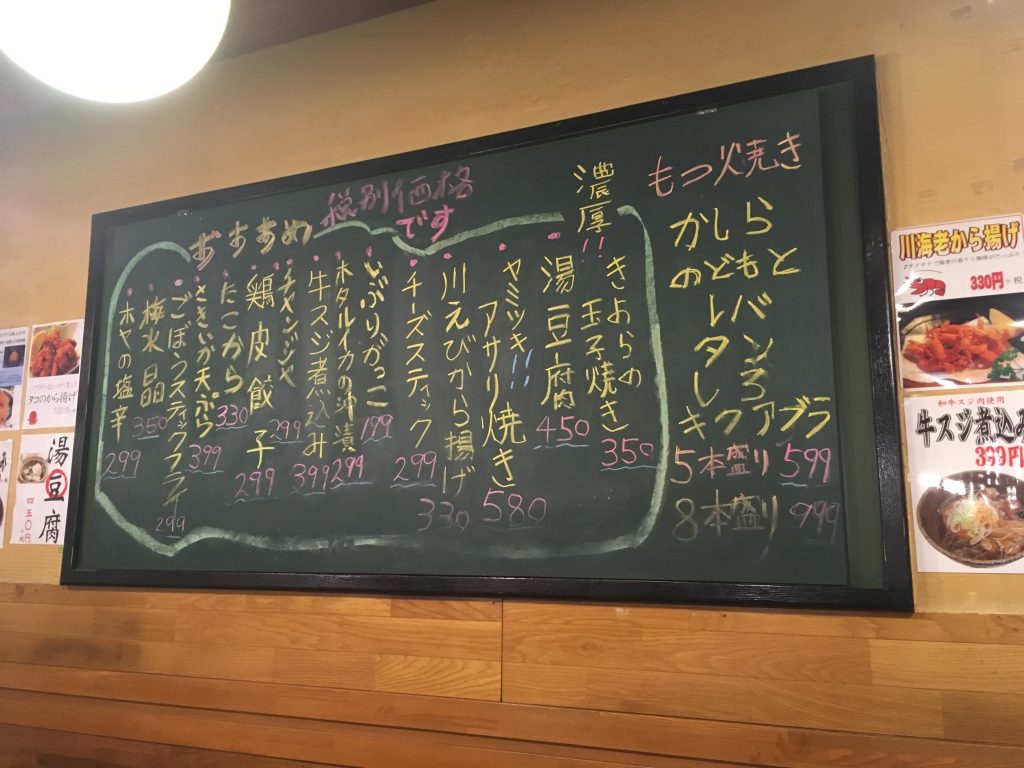 もつ焼き
かしら
のどもと
ハバンろ
レタしろ
キクアブラ
5本盛り 599
8本盛り 999
税別価格
です
おすすめ
濃厚!!
きよらの
玉子焼き
350
湯豆腐
450
ヤミツキ!!
アサリ焼き
580
川えびから揚げ
330
チーズスティック
299
いぶりがっこ
199
ホタルイカの沖漬
299
牛スジ煮込み
399
チャンジャ
299
鶏皮餃子
299
たこから
330
さきいか天ぷら
399
ごぼうスティックフライ
299
梅水晶
350
ホヤの塩辛
299
川海老から揚げ
330円+税
和牛スジ肉使用
牛スジ煮込み
399円
タコのから揚げ
湯豆腐
四五〇円